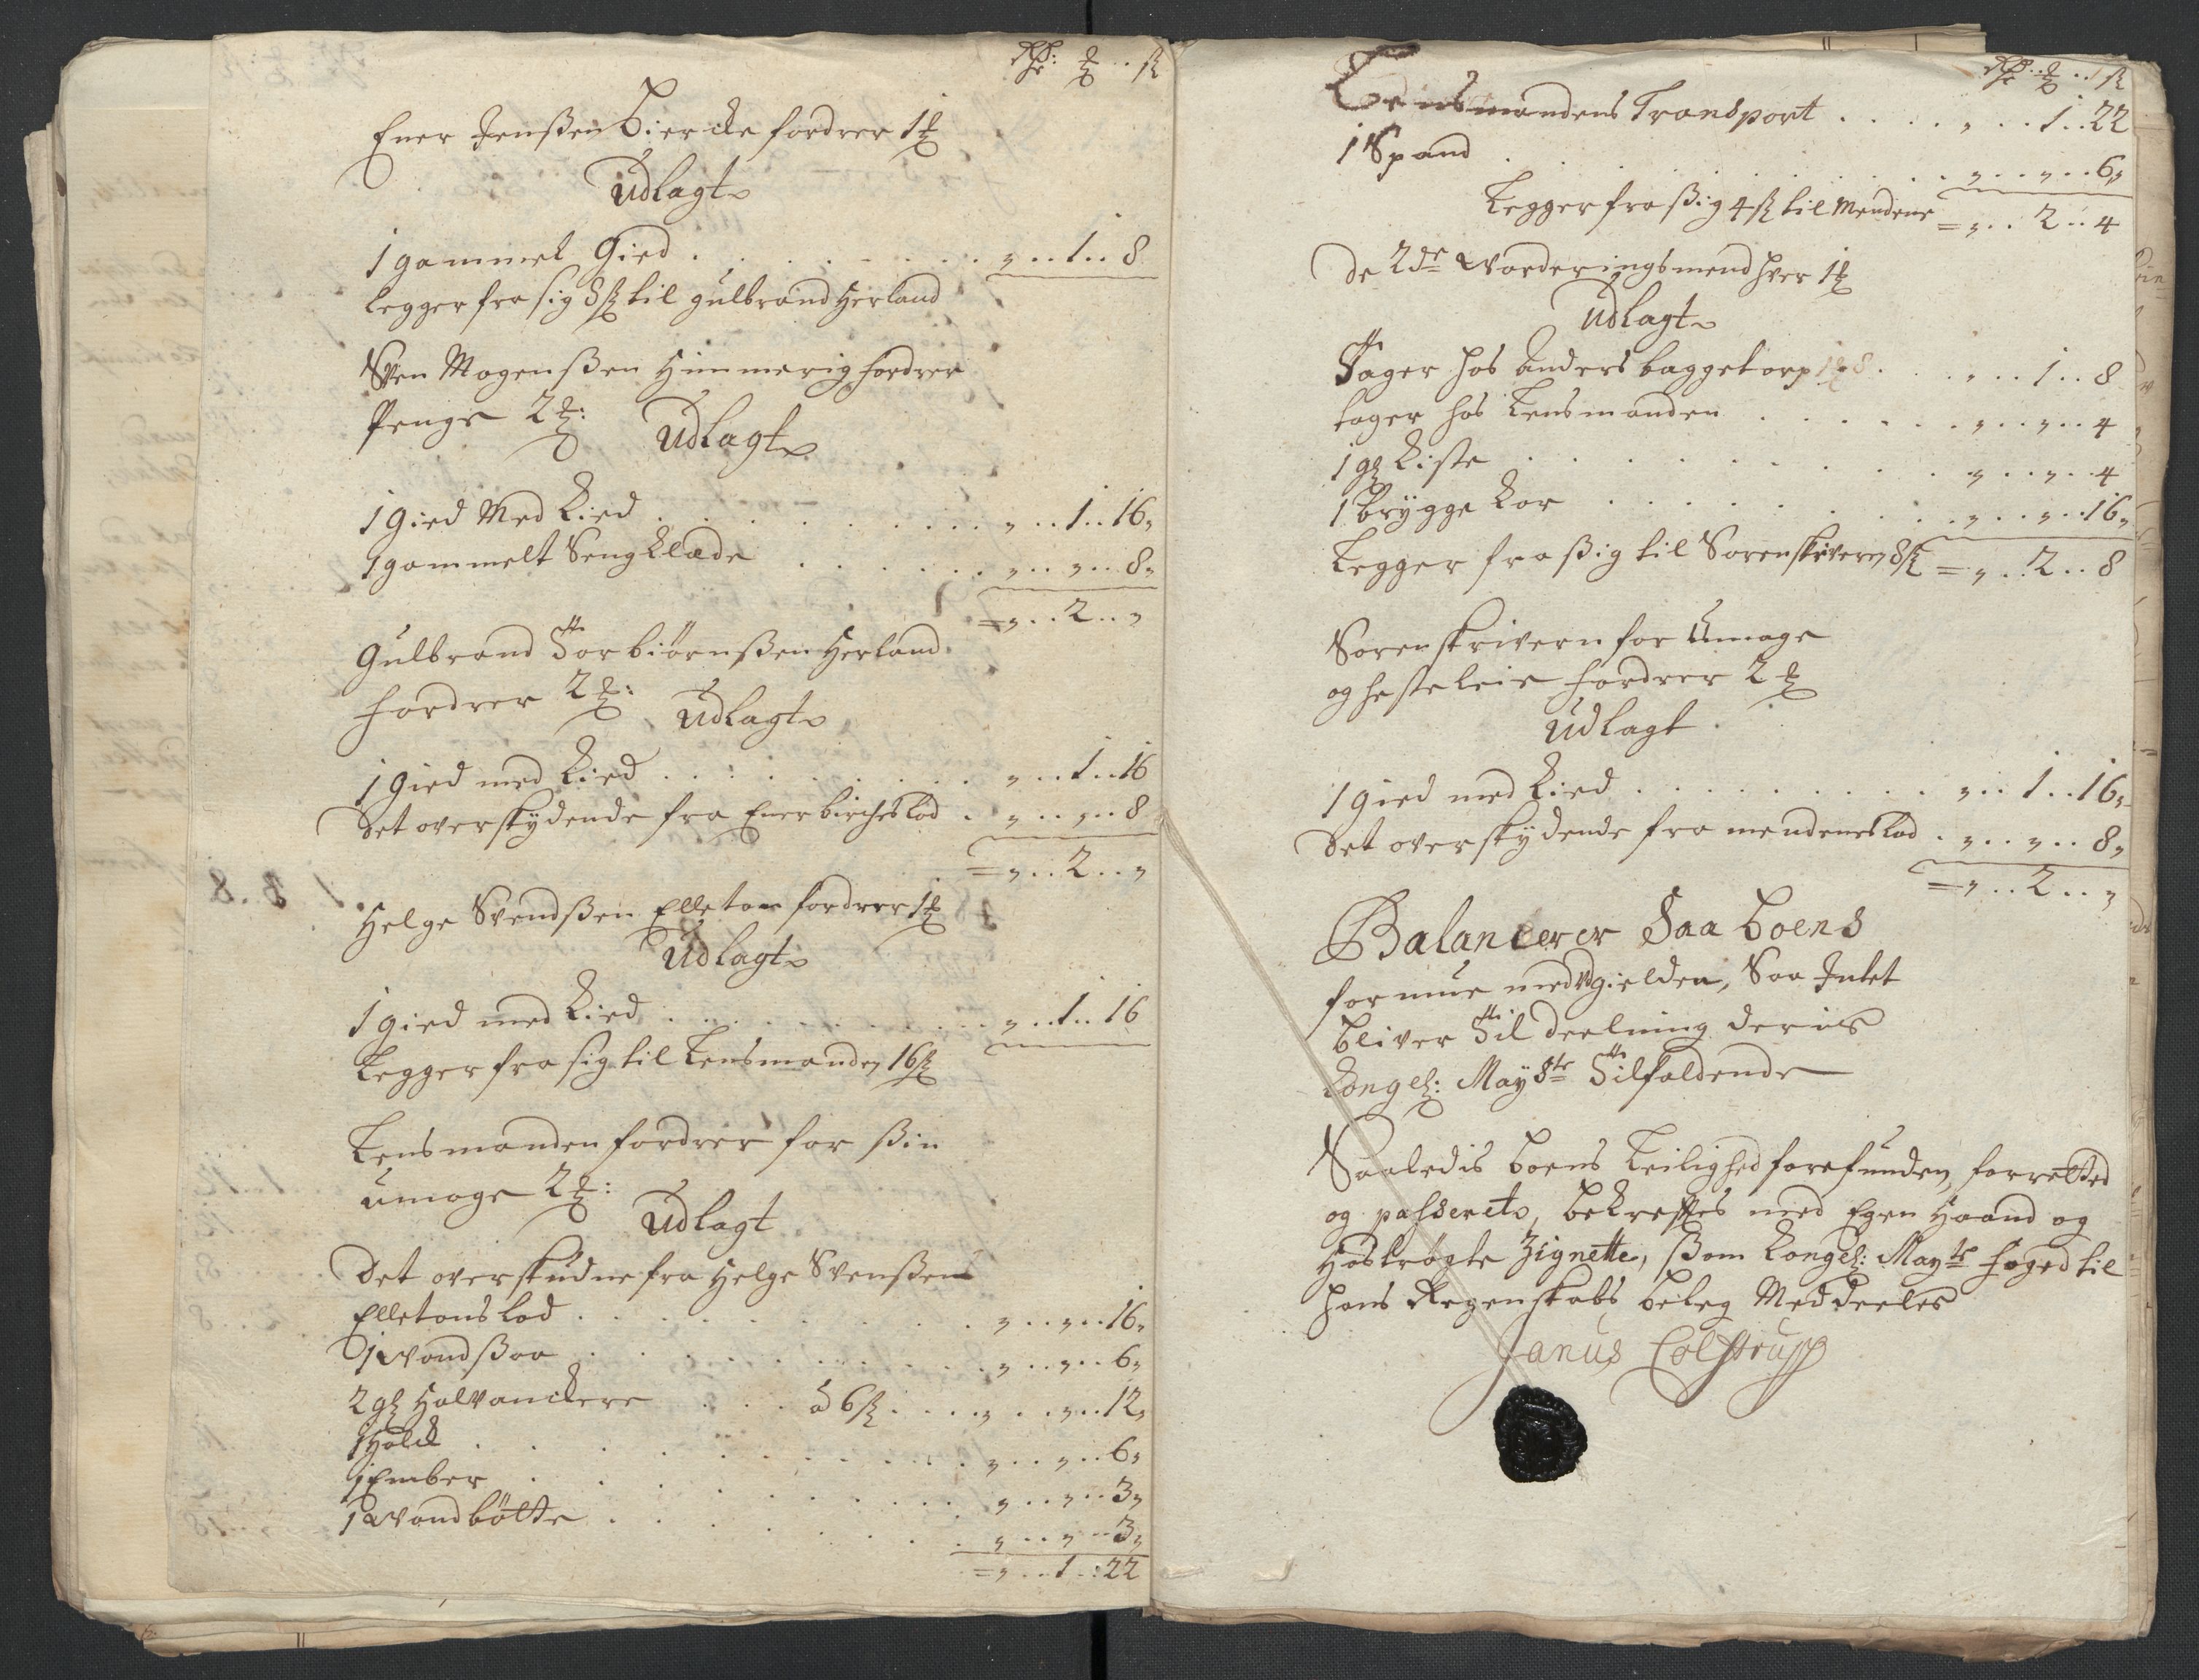 Rdr: ℳ .. ß
Ener Jenßen Biercke fordrer 1 ℳ
Udlagt
1 gammel Gied . . . . . . . „ .. 1 .. 8
legger fra sig 8 ß til Gulbrand Herland
Sven Mogenßen Himmerig fordrer
Penge 2 ℳ:
Udlagt
1 Gied Med Kied . . . . . . . „ .. 1 .. 16 „
1 gammelt Sengklæde . . . . . „ .. „ .. 8 „
= „ .. 2 .. „
Gulbrand Torbiörnßen Herland
fordrer 2 ℳ:
Udlagt
1 Gied med Kied . . . . . . . „ .. 1 .. 16
Det overskydende fra Ener birches lod . „ .. „ .. 8
= „ .. 2 .. „
Helge Svendßen Elleton fordrer 1 ℳ
Udlagt
1 gied med Kied . . . . . . . „ .. 1 .. 16
Legger fra sig til Lensmanden 16 ß
Lensmanden fordrer for ßin
umage 2 ℳ:
Udlagt
Det overskudne fra Helge Svenßens
Elletons lod . . . . . . . „ .. „ .. 16 „
1 Vandßaa . . . . . . . „ .. „ .. 6 „
2 gl Halvanckere . . . à 6 ß . . . „ .. „ .. 12 „
1 Holck . . . . . . . „ .. „ .. 6 „
1 Ember . . . . . . . „ .. „ .. 3 „
1 Vandbötte . . . . . . . „ .. „ .. 3 „
= „ .. 1 .. 22
Rdr: ℳ .. ß
Lensmandens Transport . . . . „ .. 1 .. 22
1 Spand . . . . . . . „ .. „ .. 6 „
Legger fra ßig 4 ß til Mendene = „ .. 2 .. 4
De 2de Vorderingsmend hver 1 ℳ
Udlagt
Tager hos Anders baggetorp 1 ℳ 8 . . „ .. 1 .. 8
tager hos Lensmanden . . . . . „ .. „ .. 4
1 gl Kiste . . . . . . . „ .. „ .. 4
1 Brygge Kar . . . . . . . „ .. „ .. 16 „
Legger fra ßig til Sorenskriveren 8 ß = „ .. 2 .. 8
Sorenskrivern for Umage
og hesteleie fordrer 2 ℳ
Udlagt .
1 gied med Kied . . . . . . . „ .. 1 .. 16 „
Det overskydende fra mendenes lod . „ .. „ .. 8 „
= „ .. 2 .. „
Balancerer Saa boens
formue med Gielden, Saa Intet
bliver Til deelning deris
Kongel: Mayste Tilfaldende
Saaledis boens Leilighed forefunden, forretted
og passeret, bekreftes med Egen Haand og
Hoströgte Zignette, ßom Kongel: Mayts foged til
hans Regenskabs beleg Meddeeles
Janus Colstrupp